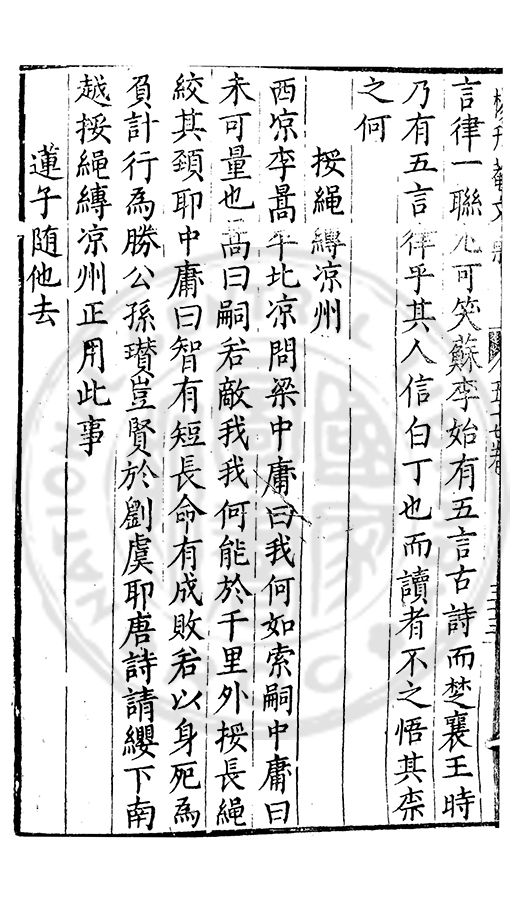 言律一聯尤可笑蘇李始有五言古詩而楚襄王時
乃有五言律乎其人信白丁也而讀者不之悟其柰
之何
挼繩縳凉州
西凉李暠平北凉問梁中庸曰我何如索嗣中庸曰
未可量也暠曰嗣若敵我我何能於千里外挼長繩
絞其頚耶中庸曰智有短長命有成敗若以身死為
負計行為勝公孫瓉豈賢於劉虞耶唐詩請纓下南
越挼繩縳凉州正用此事
蓮子随他去